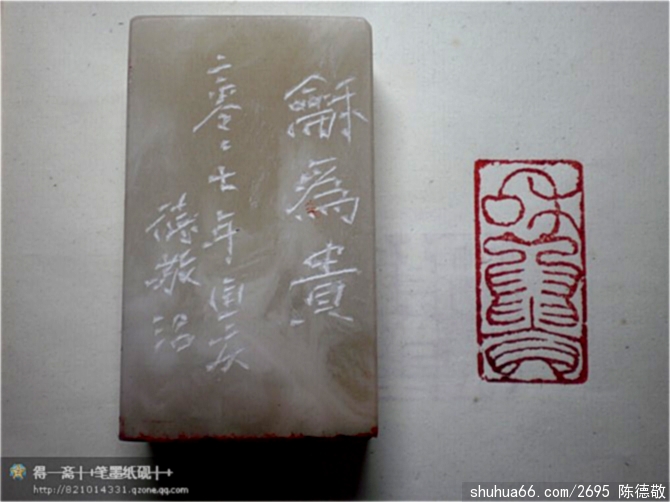 龢為貴
二零々七年
德敬
得一斋十十笔墨纸砚十十
http://821014331.qzone.qq.com
shuhua66.com/2695 陈德敬